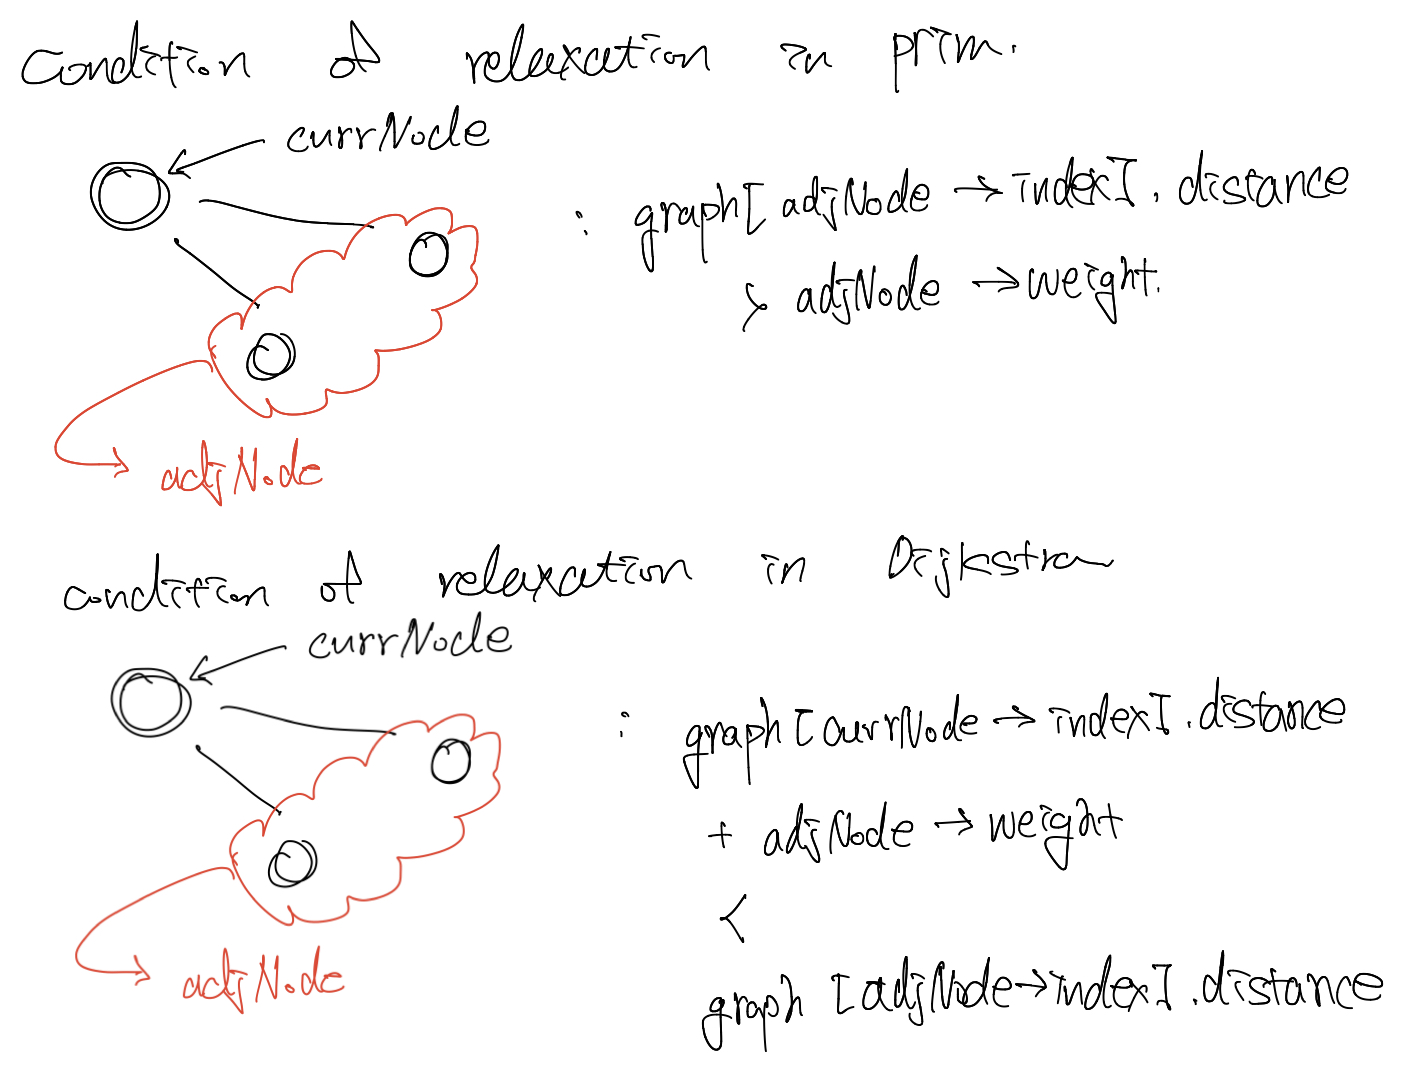 Condition of relaxcation in prim.
currNode
: graph[adjNode → index].distance
> adjNode → weight.
adjNode
condition of relaxcation in Dijkstra
currNode
: graph[currNode → index].distance
+ adjNode → weight
<
graph [adjNode → index].distance
adjNode